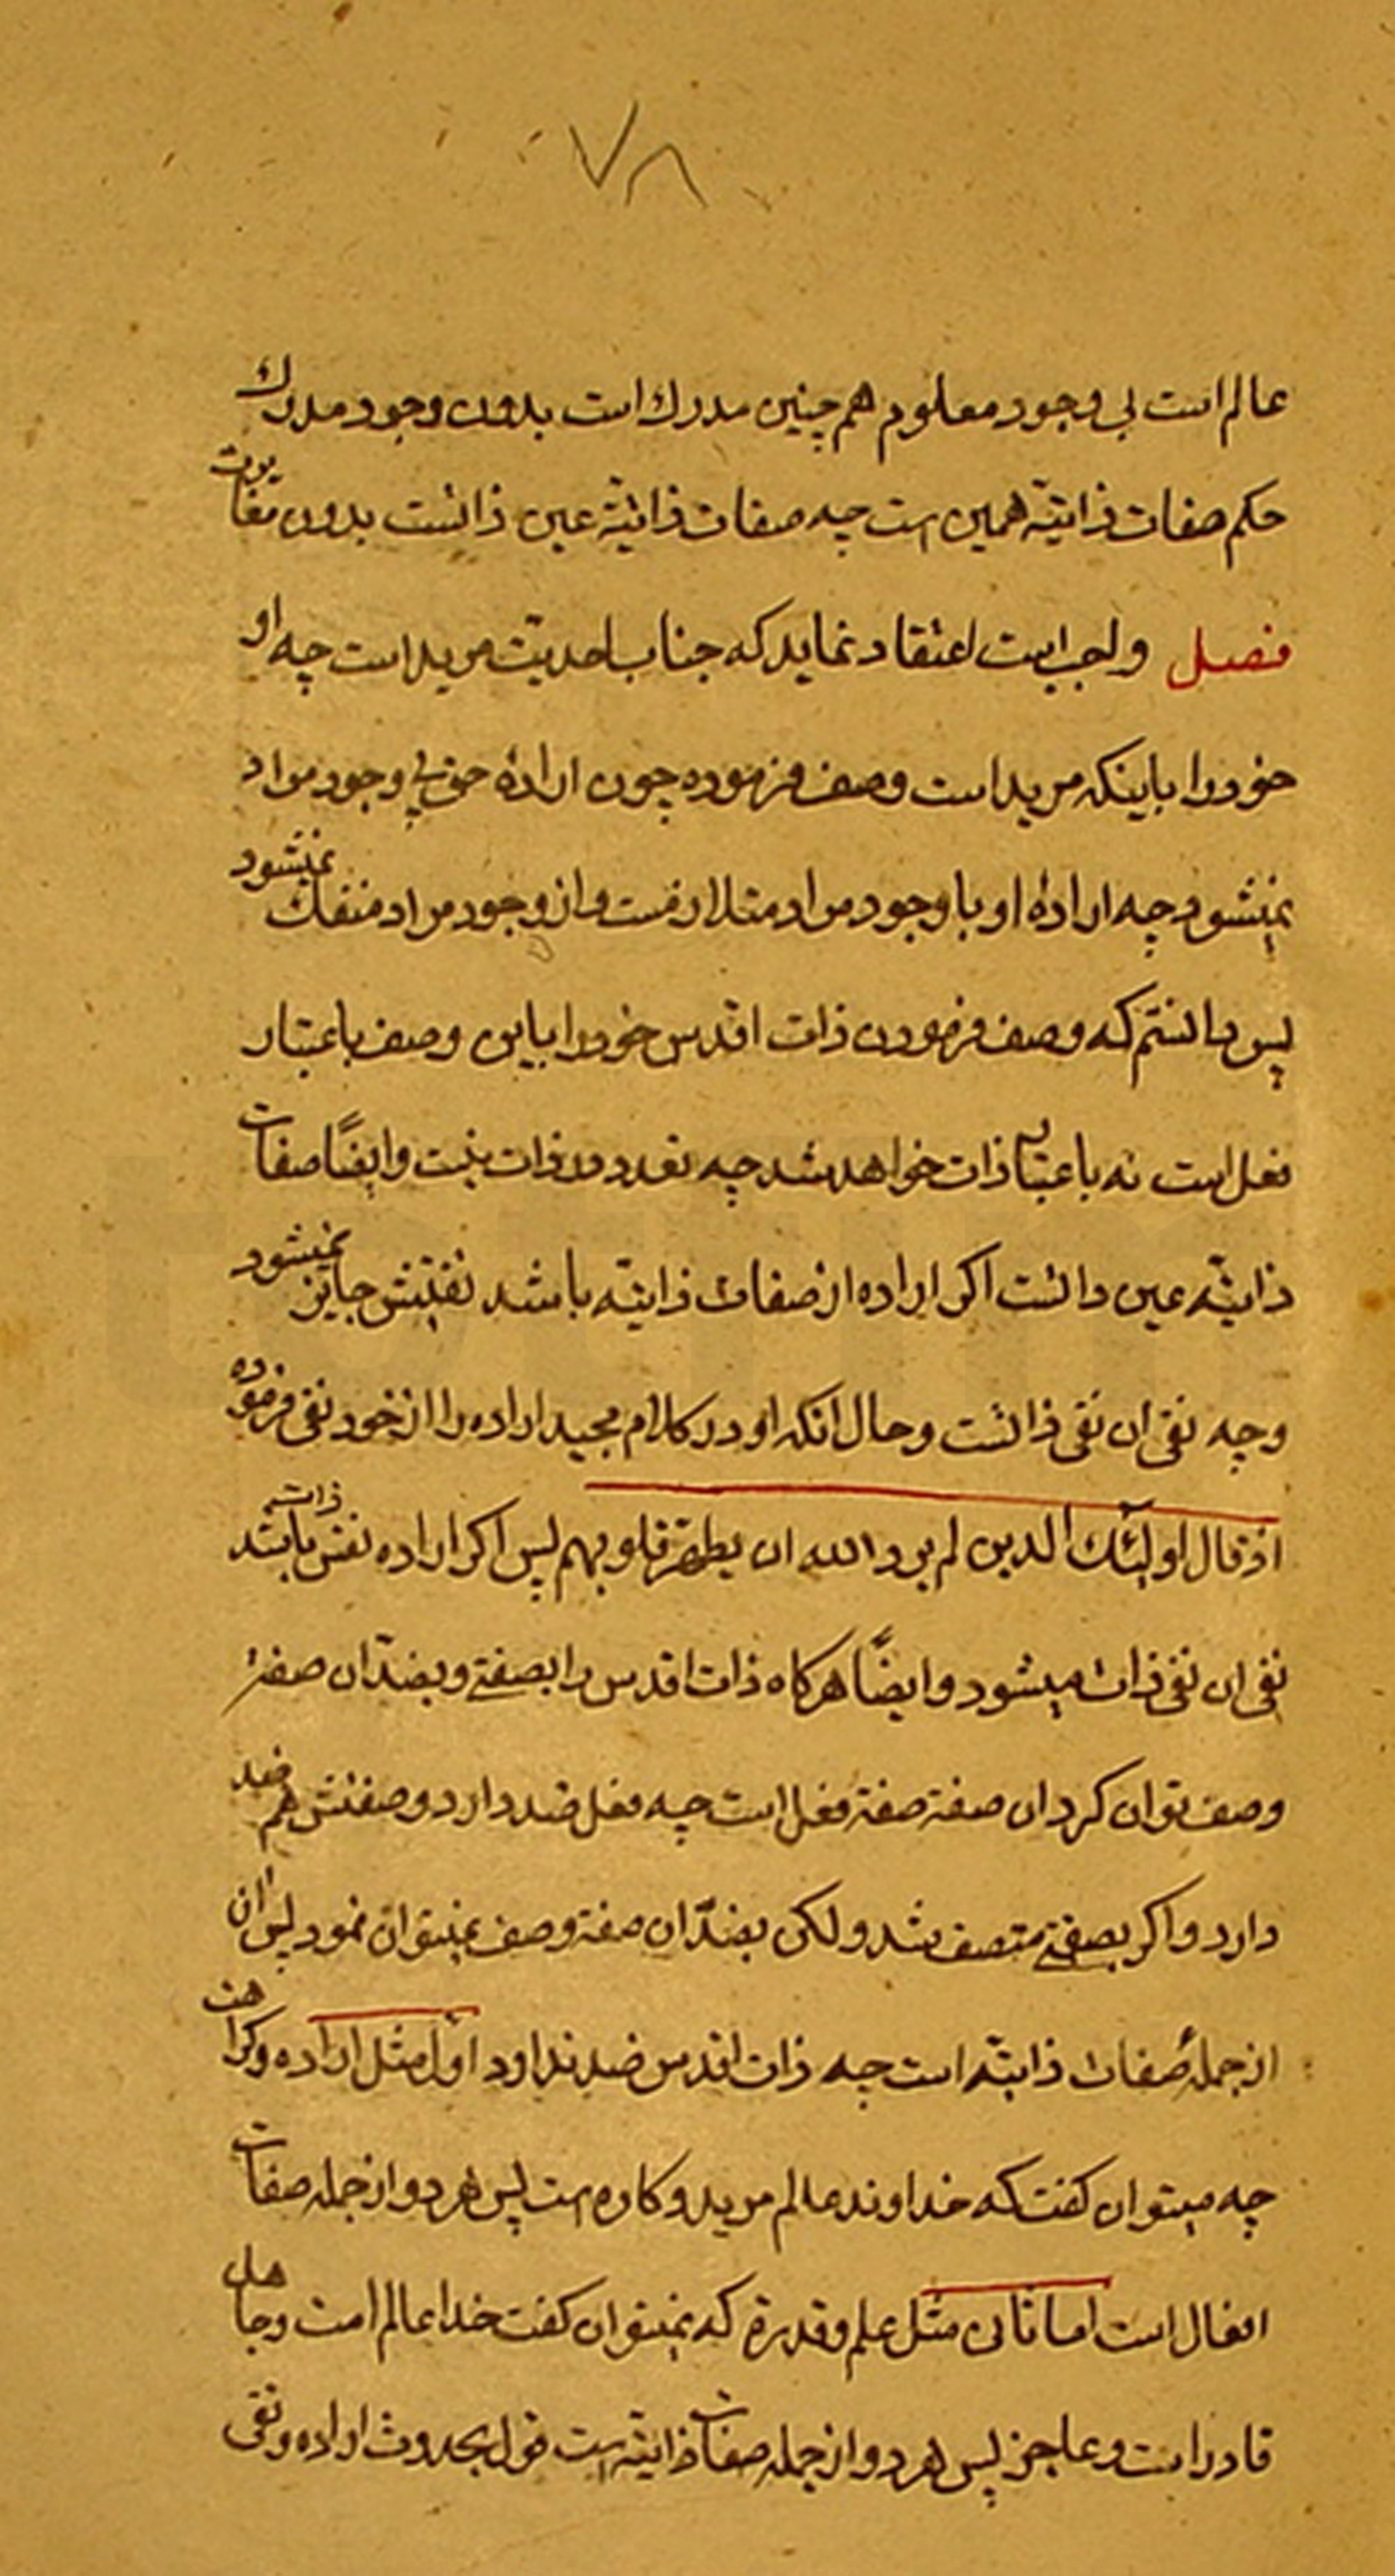 ٧٨
عالم است بی وجود معلوم هم چنین مدرك است بدون وجود مدرك
حکم صفات ذاتیّه همین است چه صفات ذاتیّه عین ذاتست بدون تفاوت
فصل واجب است اعتقاد نماید که جناب احدیّت مرید است چه او
خود را باینکه مرید است وصف فرموده چون ارادهٔ حق بی وجود مراد
نمیشود چه ارادهٔ او با وجود مراد متلازمست و از وجود مراد منفك نمیشود
پس دانستم که وصف فرمودن ذات اقدس خود را باین وصف باعتبار
فعل است نه باعتبار ذات خواهد شد چه تعدد در ذات نیست و ایضًا صفات
ذاتیّه عین ذاتست اکر اراده از صفات ذاتیّه باشد نفیش جایز نمیشود
و چه نفی ان نفی ذاتست و حال انکه او در کلام مجید اراده را از خود نفی فرموده
اذ قال اولئك الذین لم یرد الله ان یطهّر قلوبهم پس اکر اراده نفس ذات باشد
نفی ان نفی ذات میشود و ایضًا هرکاه ذات اقدس را بصفتی و بضدّ ان صفة
وصف توان کرد ان صفة صفة فعل است چه فعل ضد دارد و صفتش هم ضد
دارد و اکر بصفتی متصف شد ولکن بضدّ ان صفة وصف نمیتوان نمود پس ان
از جملهٔ صفات ذاتیّه است چه ذات اقدس ضد ندارد اول مثل اراده و کراهت
چه میتوان کفت که خداوند عالم مرید و کاره است پس هر دو از جمله صفات
افعال است اما ثانی مثل علم و قدرة که نمیتوان کفت خدا عالم است و جاهل
قادر است و عاجز پس هر دو از جمله صفات ذاتیّه است قول بحدوث اراده و نفی